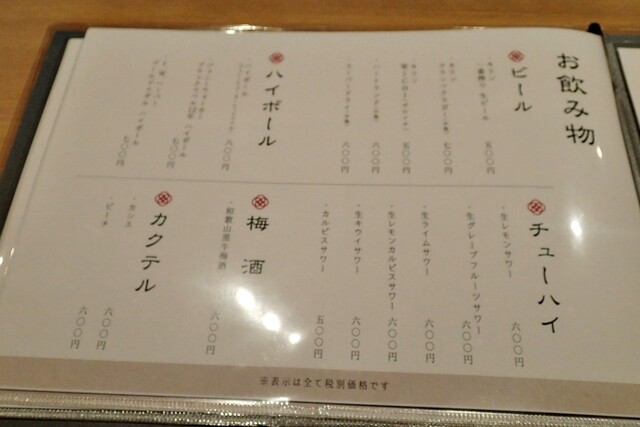 お飲み物
ビール
キリン
一番搾り 生ビール 五〇〇円
キリン
クラシックラガー(中瓶) 七〇〇円
キリン
五〇〇円
ハートランド(中瓶) 六〇〇円
スーパードライ(中瓶) 六〇〇円
ハイボール
ハイボール
六〇〇円
ハイボール 七〇〇円
ハイボール 七〇〇円
チューハイ
・生レモンサワー 六〇〇円
・生グレープフルーツサワー 六〇〇円
・生ライムサワー 六〇〇円
・生レモンカルピスサワー 六〇〇円
・生キウイサワー 六〇〇円
・カルピスサワー 五〇〇円
梅酒
・和歌山黒牛梅酒 六〇〇円
カクテル
・カシス 六〇〇円
・ピーチ 六〇〇円
※表示は全て税別価格です